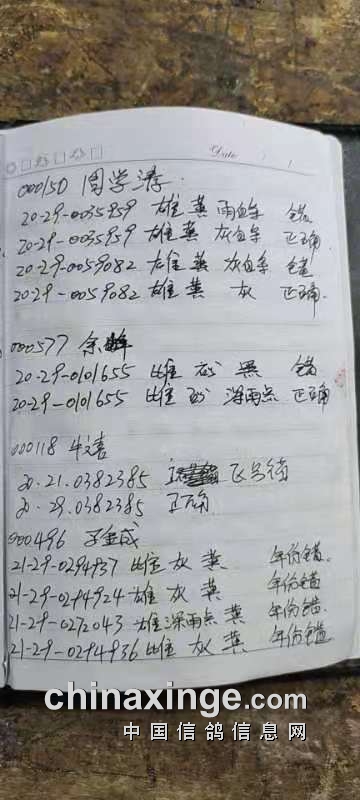 Date
000150 周学涛
20-29-0035959 雄 黄 雨白条 错
20-29-0035959 雄 黄 灰白条 正确
20-29-0059082 雄 黄 灰白条 错
20-29-0059082 雄 黄 灰 正确.
000577 余
20-29-0101655 雌 砂 黑 错
20-29-0101655 雌 砂 深雨点 正确
000118
20.21.0382385 正号错
20.29.0382385 正确
000496 孟成
21-29-0294937 雌 灰 黄 年份错.
21-29-0294924 雄 灰 黄 年份错
21-29-0272043 雄 深雨点 黄 年份错.
21-29-0294936 雌 灰 黄 年份错
chinaxinge.com
中国信鸽信息网